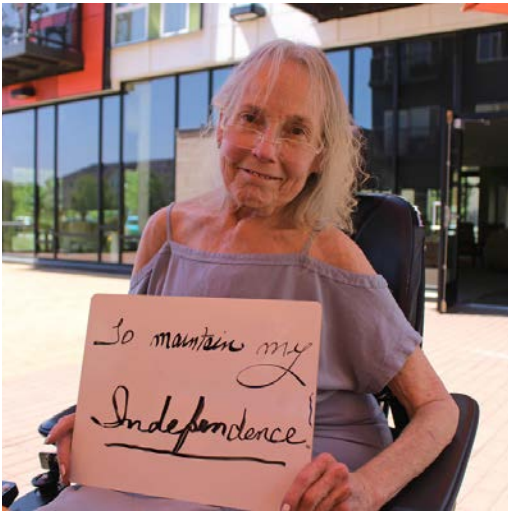 To maintain my
Independence